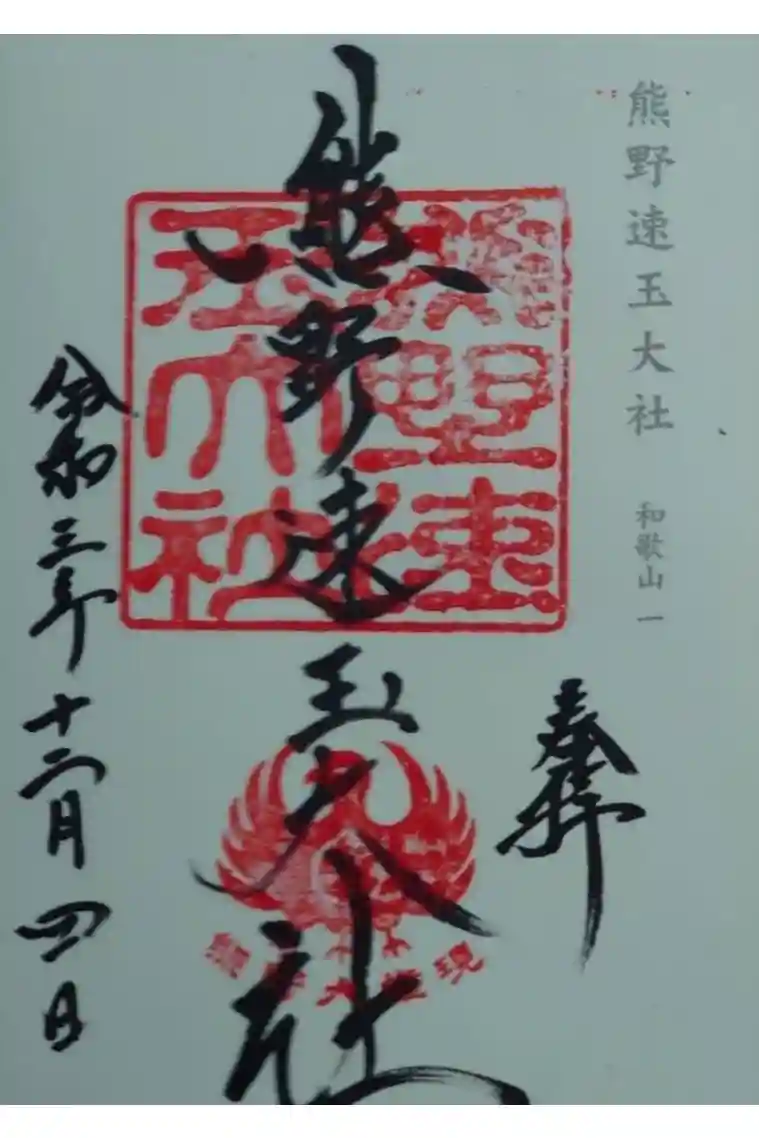 熊野速玉大社
和歌山 一
奉拝
熊野速玉大社
熊野速
玉大社
熊野大権現
令和三年十二月四日